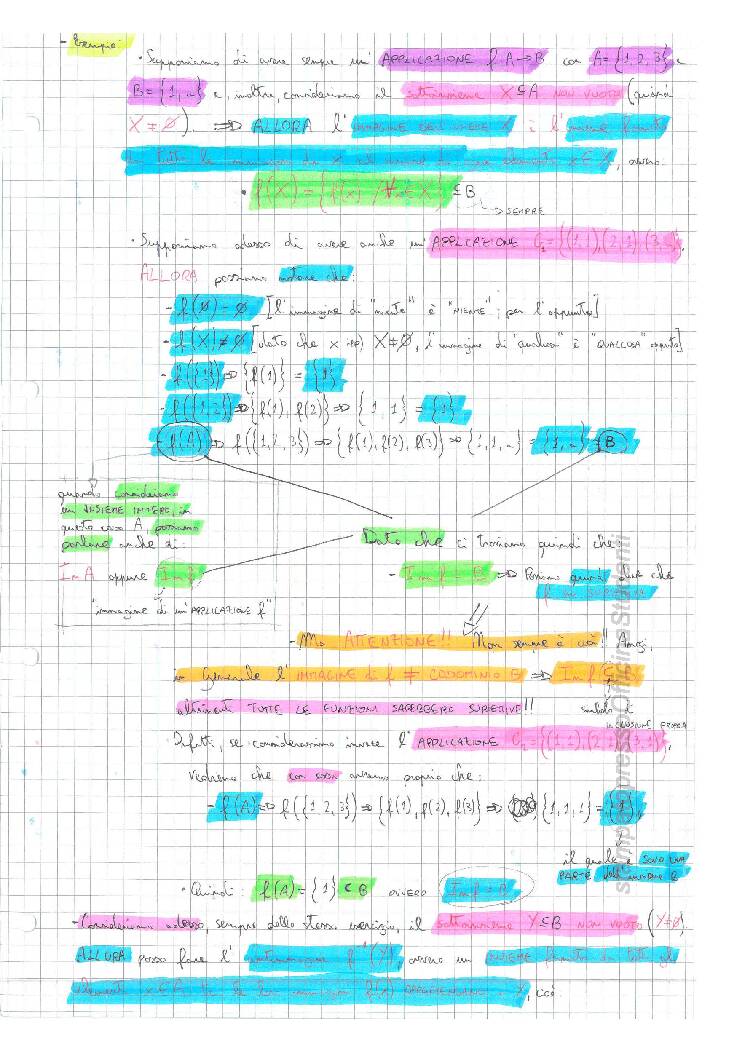 - Esempio
• Supponiamo di avere sempre un' APPLICAZIONE f: A→B con A={1,2,3} e
B={1, } e, inoltre, consideriamo il sottoinsieme X⊆A NON VUOTO (quindi
X≠∅) ⇒ ALLORA l'IMMAGINE DELL'INSIEME X è l'insieme formato
da tutte le immagini di x al variare di ogni elemento x∈X, ovvero:
• f(X)={f(x) /∀x∈X} ⊆B
→ SEMPRE
• Supponiamo adesso di avere anche un'APPLICAZIONE G₁={(1,1),(2,1),(3, )}.
ALLORA possiamo notare che:
- f(∅)=∅ [l'immagine di "niente" è "NIENTE", per l'appunto]
- f(X)≠∅ [dato che x X≠∅, l'immagine di "qualcosa" è "QUALCOSA" appunto]
- f({1}) ⇒ {f(1)} = {1}
- f({1,2}) ⇒ {f(1), f(2)} ⇒ {1,1} = {1}
- f(A) ⇒ f({1,2,3}) ⇒ {f(1), f(2), f(3)} ⇒ {1,1, } = {1, } = B
quando consideriamo
un INSIEME INTERO, in
questo caso A, possiamo
parlare anche di:
Im A oppure Im f
"immagine di un'APPLICAZIONE f"
Dato che ci troviamo quindi che:
- Im f = B ⇒ Possiamo quindi dire che
f SURIETTIVA
- Ma ATTENZIONE!! Non sempre è così!! Anzi,
in generale l'IMMAGINE di f ≠ CODOMINIO B ⇒ Im f B
altrimenti TUTTE LE FUNZIONI SAREBBERO SURIETTIVE!!
simbolo di
INCLUSIONE
Difatti, se considerassimo invece l'APPLICAZIONE G₂={(1,1),(2,1),(3,1)},
vedremo che con essa avremo proprio che:
- f(A) ⇒ f({1,2,3}) ⇒ {f(1), f(2), f(3)} ⇒ {1,1,1} = {1},
il quale è SOLO UNA
PARTE dell'insieme B
• Quindi: f(A)={1} ⊂ B OVVERO Im f
- Consideriamo adesso, sempre dello stesso esercizio, il sottoinsieme Y⊆B NON VUOTO (Y≠∅).
ALLORA posso fare l' f⁻¹(Y), ovvero un INSIEME formato da tutti gli
elementi x∈A, la loro immagine f(x) , cioè:
stampatopressoOfficinaStudenti